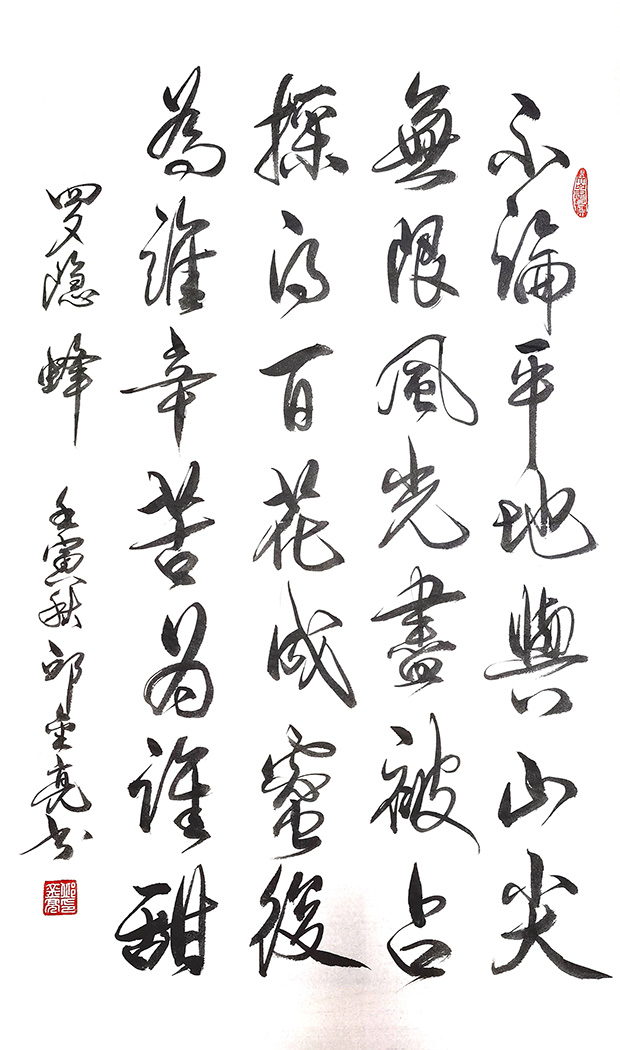 不論平地與山尖
無限風光盡被占
採得百花成蜜後
為誰辛苦為誰甜
罗隐蜂 壬寅秋 邱金亮书